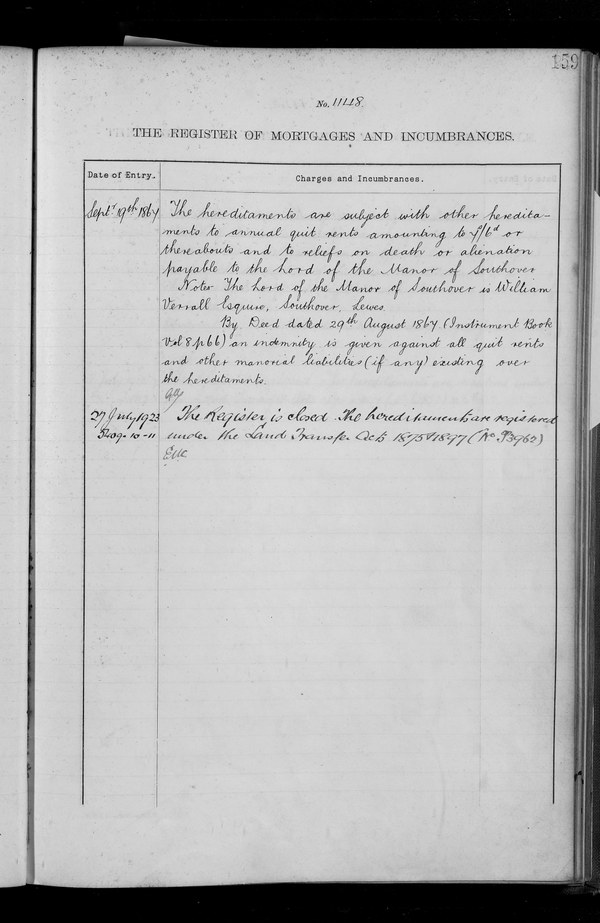 159
No. 1148
THE REGISTER OF MORTGAGES AND INCUMBRANCES.
Date of Entry.
Charges and Incumbrances.
Septr. 19th 1867
The hereditaments are subject with other heredita-
ments to annual quit rents amounting to /6d or
thereabouts and to reliefs on death or alienation
payable to the Lord of the Manor of Southover
Note The Lord of the Manor of Southover is William
Verrall Esquire, Southover, Lewes.
By Deed dated 29th August 1867 (Instrument Book
Vol 8 p 66) an indemnity is given against all quit rents
and other manorial liabilities (if any) existing over
the hereditaments.
27 July 1923
10-11
The Register is closed. The hereditaments are registered
under the Land Transfer Acts 1875 & 1897 (No